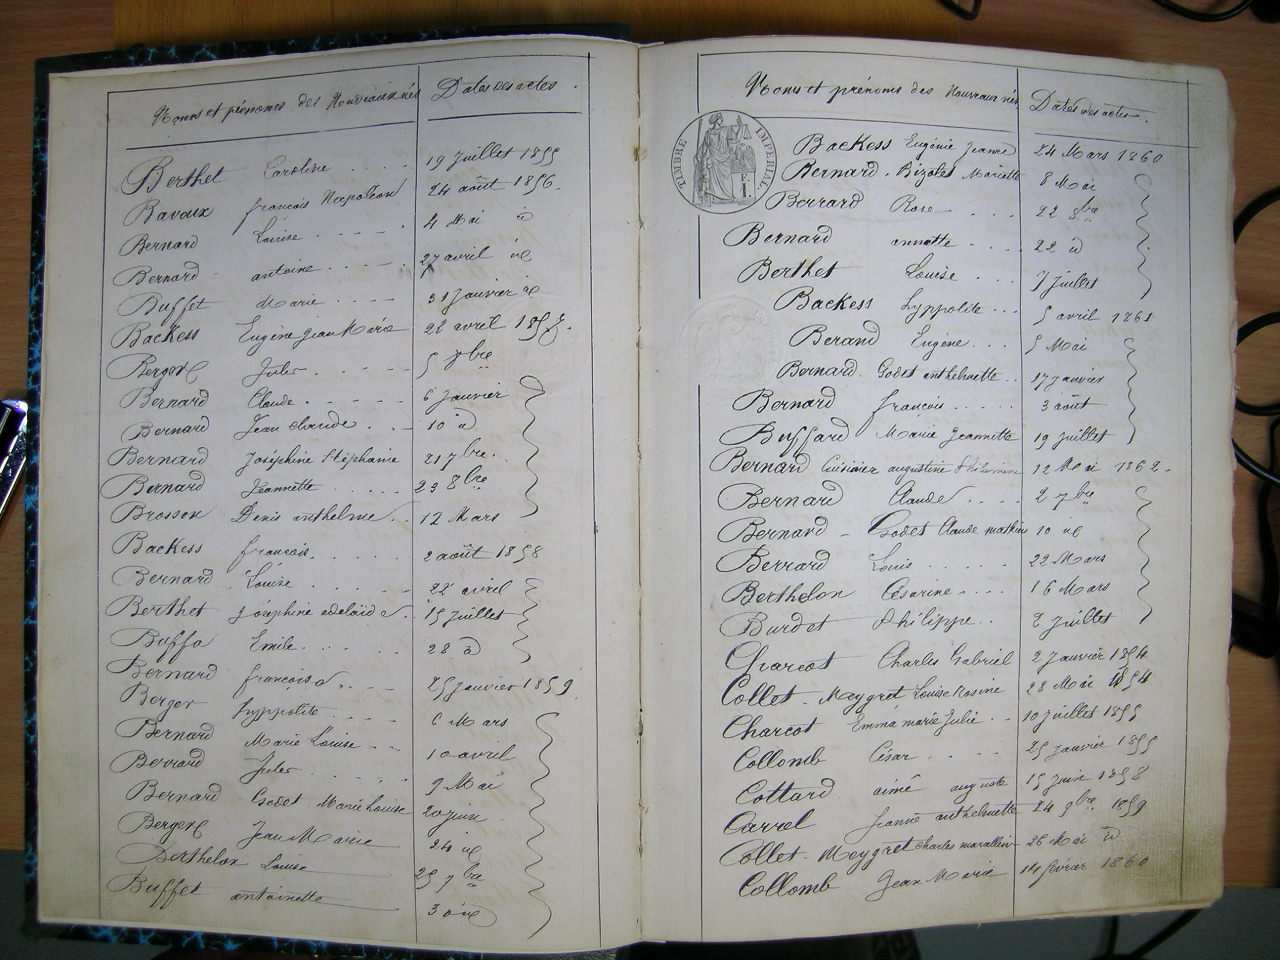 Noms et prénoms des Nouveaux nés Dates des actes.
Berthet Caroline 19 Juillet 1855
Bavoux françois Napoléon 24 août 1856.
Bernard Louise 4 Mai id
Bernard antoine 27 avril id
Buffet Marie 31 Janvier id
Backess Eugène Jean Marie 22 avril 1857.
Berger Jules 5 7bre
Bernard Claude 6 Janvier
Bernard Jean claude 10 id
Bernard Joséphine Stéphanie 21 7bre.
Bernard Jeannette 23 8bre
Brosson Denis anthelme 12 Mars
Backess françois 2 août 1858
Bernard Louise 22 avril
Berthet Joséphine adelaide 15 Juillet
Buffa Emile 28 id
Bernard 25 Janvier 1859.
Berger hyppolite 6 Mars
Bernard Marie Louise 10 avril
Berrard Jules 9 Mai
Bernard Godet Marie Louise 20 juin
Berger Jean Marie 24 id
Berthelon Louise 25 7bre
Buffet antoinette 3 id
Noms et prénoms des Nouveaux nés Dates des actes.
TIMBRE IMPERIAL.
Backess Eugénie Jeanne 24 Mars 1860
Bernard - Bizolet Mariette 8 Mai
Berrard Rose 22 9bre
Bernard annette 22 id
Berthet Louise 7 juillet
Backess hyppolite 5 avril 1861
Berand Eugène 5 Mai
Bernard Godet anthelmette 17 janvier
Bernard françois 3 août
Buffard Marie Jeannette 19 juillet
Bernard augustine 12 Mai 1862.
Bernard Claude 2 7bre
Bernard - Godet Claude mathieu 10 id
Berrard Louis 22 Mars
Berthelon Césarine 16 Mars
Burdet Philippe 2 juillet
Charcot Charles Gabriel 2 Janvier 1854
Collet - Meygret Louise Rosine 28 Mai 1854
Charcot Emma marie Julie 10 Juillet 1855
Collomb César 25 janvier 1855
Cottard aimé auguste 15 Juin 1858
Carrel Jeanne anthelmette 24 9bre 1859
Collet - Meygret Charles 26 Mai id
Collomb Jean Marie 14 février 1860